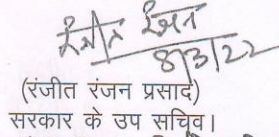 रंजीत रंजन
8/3/22
(रंजीत रंजन प्रसाद)
सरकार के उप सचिव।